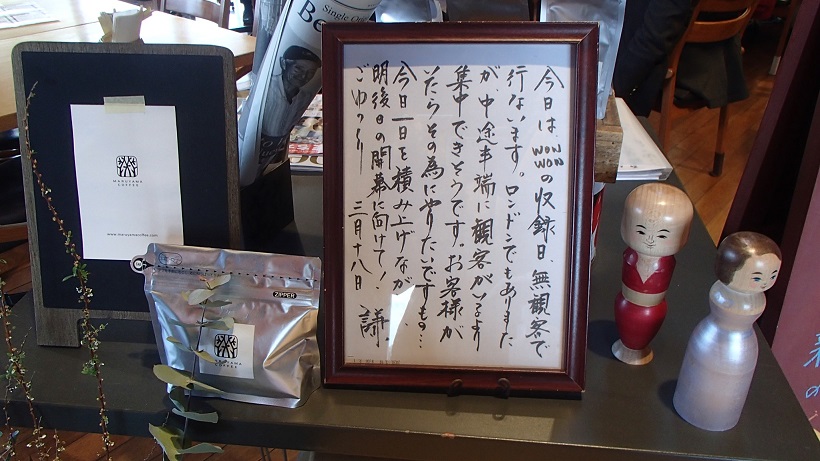 Single Or
Be
MARUYAMA
COFFEE
www.maruyamacoffee.com
ZIPPER
MARUYAMA
COFFEE
今日は WOWWOWの収録日、無観客で
行ないます。ロンドンでもありました
が、中途半端に観客がいるより
集中できそうです。お客様が
いたらその為にやりたいですもの…
今日一日を積み上げながら
明後日の開幕に向けて!
ごゆっくり 三月十八日 謙